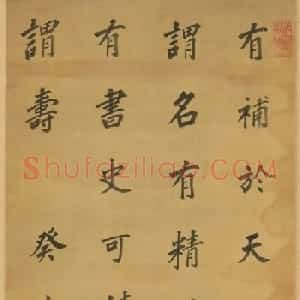 有補於天
謂名有精
有書史可
謂壽癸
Shufaziliao.COM